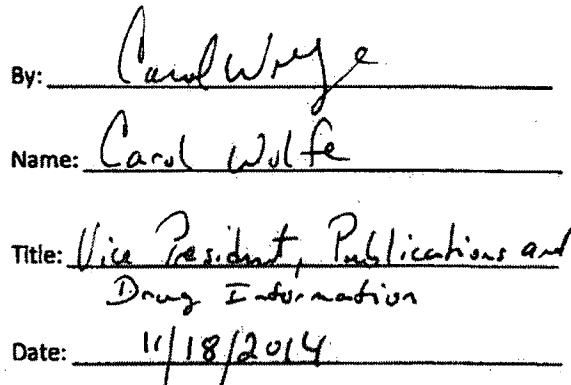 By: Carol Wolfe
Name: Carol Wolfe
Title: Vice President, Publications and
Drug Information
Date: 11/18/2014